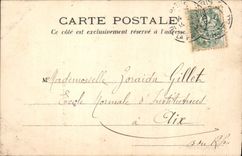 CARTE POSTALE
Ce côté est exclusivement réservé à l'adresse
Mademoiselle Zoraïda Gillet
École Normale d'Institutrices
à Aix